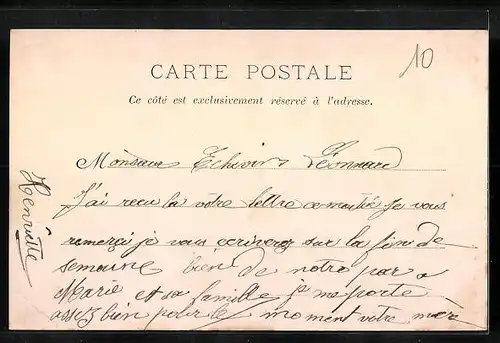 10
CARTE POSTALE
Ce côté est exclusivement réservé à l'adresse.
Monsieur Léonard
J'ai recu la votre lettre ce je vous
remerci je vous ecriverez sur la fin de
semaine bien de notre par a
Marie et sa famille me porte
assez bien pour le moment votre
Henriette